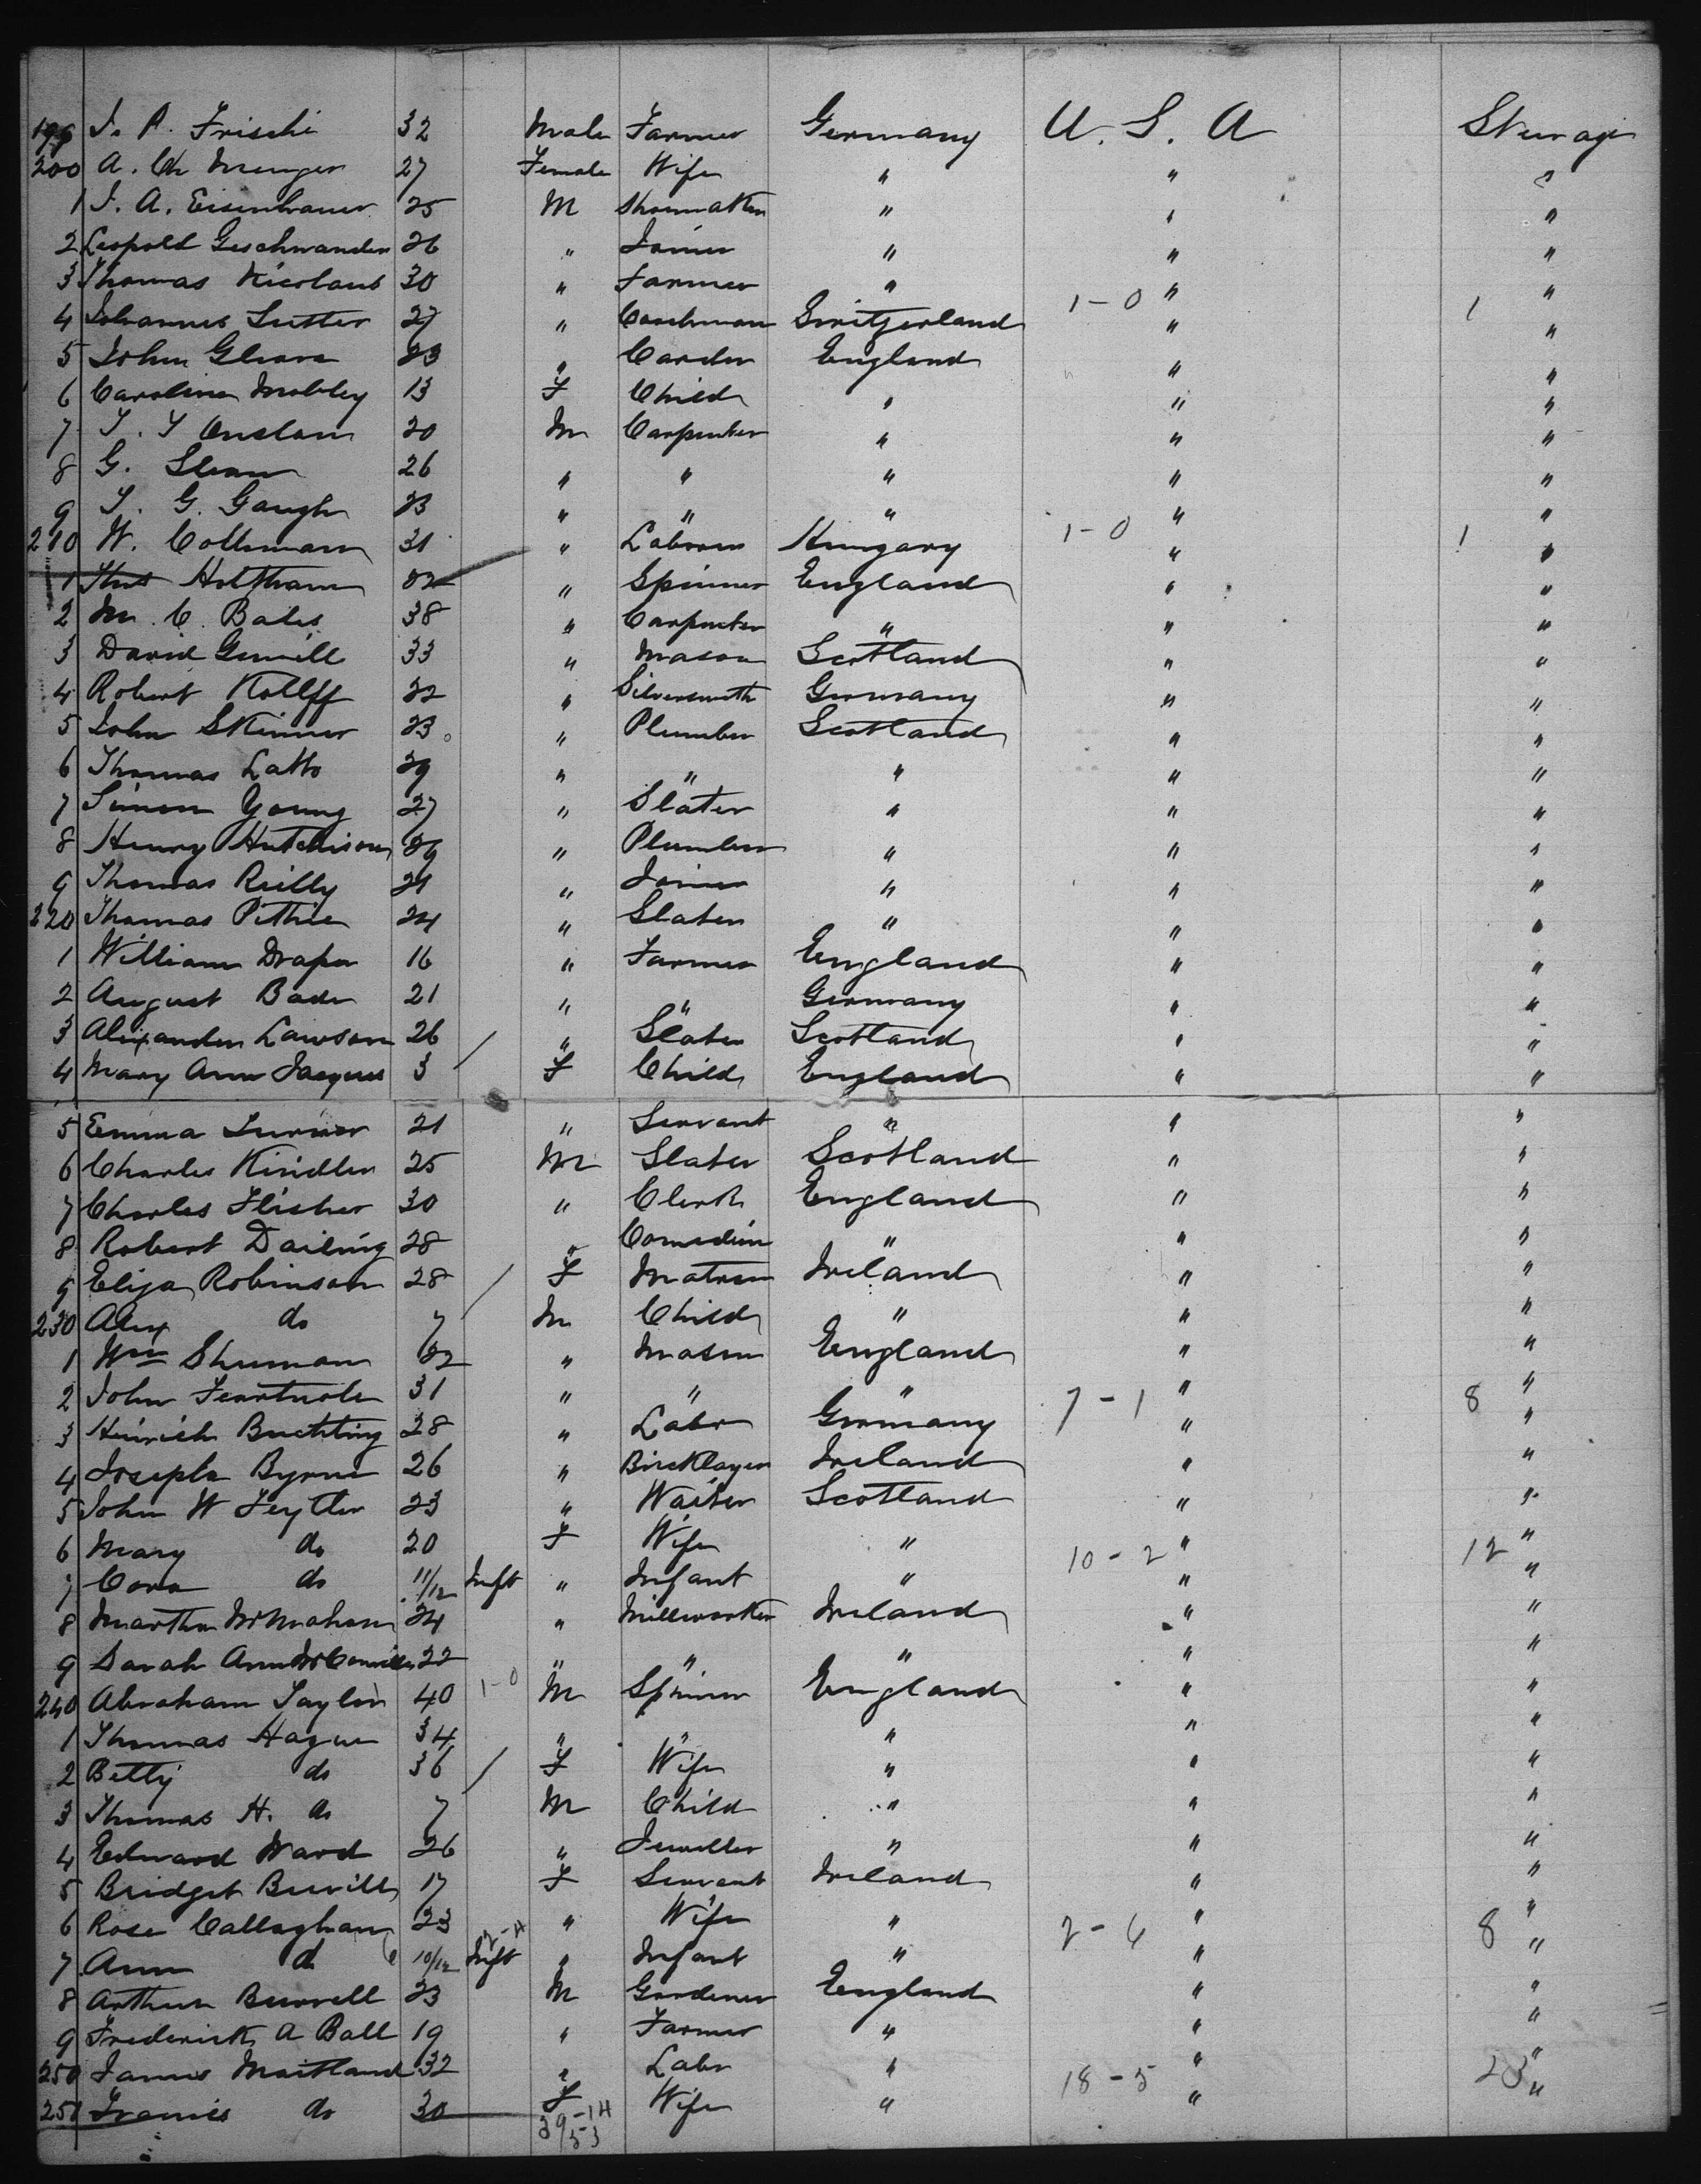 199 J. A. Frischi 32 Male Farmer Germany U. S. A Steerage
200 A. Ch Menger 27 Female Wife " " "
1 J. A. Eisenhauer 25 M Shoemaker " " "
2 Leopold Geschwander 26 " Joiner " " "
3 Thomas Nicolaus 30 " Farmer " " "
4 Johannes Sutter 27 " Coachman Switzerland 1-0 " 1 "
5 John Gleave 23 " Carder England " "
6 Caroline Mobley 13 F Child " " "
7 T. Y Onslow 20 M Carpenter " " "
8 G. Sloan 26 " " " " "
9 T. G. Gaugh 23 " " " " "
210 W. Collmann 31 " Labourer Hungary 1-0 " 1 "
1 Thos Holtham 32 " Spinner England " "
2 M. C. Bales 38 " Carpenter " " "
3 David Gemill 33 " Mason Scotland " "
4 Robert Kollff 22 " Silversmith Germany " "
5 John Skinner 23 " Plumber Scotland " "
6 Thomas Latto 29 " " " " "
7 Simon Young 27 " Slater " " "
8 Henry Hutchison 26 " Plumber " " "
9 Thomas Reilly 21 " Joiner " " "
220 Thomas Pithie 24 " Slater " " "
1 William Draper 16 " Farmer England " "
2 August Bade 21 " " Germany " "
3 Alexander Lawson 26 " Slater Scotland " "
4 Mary Ann Jacques 3 F Child England " "
5 Emma Turner 21 " Servant " " "
6 Charles Kindler 25 M Slater Scotland " "
7 Charles Flisher 30 " Clerk England " "
8 Robert Dailing 28 " Comedian " " "
9 Eliza Robinson 28 F Matron Ireland " "
230 Alex do 7 M Child " " "
1 Wm Shuman 32 " Mason England " "
2 John 31 " " " 7-1 " 8 "
3 Heinrich Buchting 28 " Labr Germany " "
4 Joseph Byrne 26 " Bricklayer Ireland " "
5 John W Feytler 23 " Waiter Scotland " "
6 Mary do 20 F Wife " 10-2 " 12 "
7 Cora do 11/12 Inft " Infant " " "
8 Martha McMahon 24 " Millworker Ireland " "
9 Sarah Ann McConville 22 " " " " "
240 Abraham Taylor 40 1-0 M Spinner England " "
1 Thomas Hague 34 " " " " "
2 Betty do 36 F Wife " " "
3 Thomas H. do 7 M Child " " "
4 Edward Ward 26 " Jeweller " " "
5 Bridget 17 F Servant Ireland " "
6 Rose Callaghan 23 " Wife " 2-6 " 8 "
7 Ann do 10/12 Inft " Infant " " "
8 Arthur Burrell 23 M Gardener England " "
9 Frederick A Ball 19 " Farmer " " "
250 James Maitland 32 " Labr " 18-5 " 23 "
251 Francis do 30 F Wife " " "
39-14
53